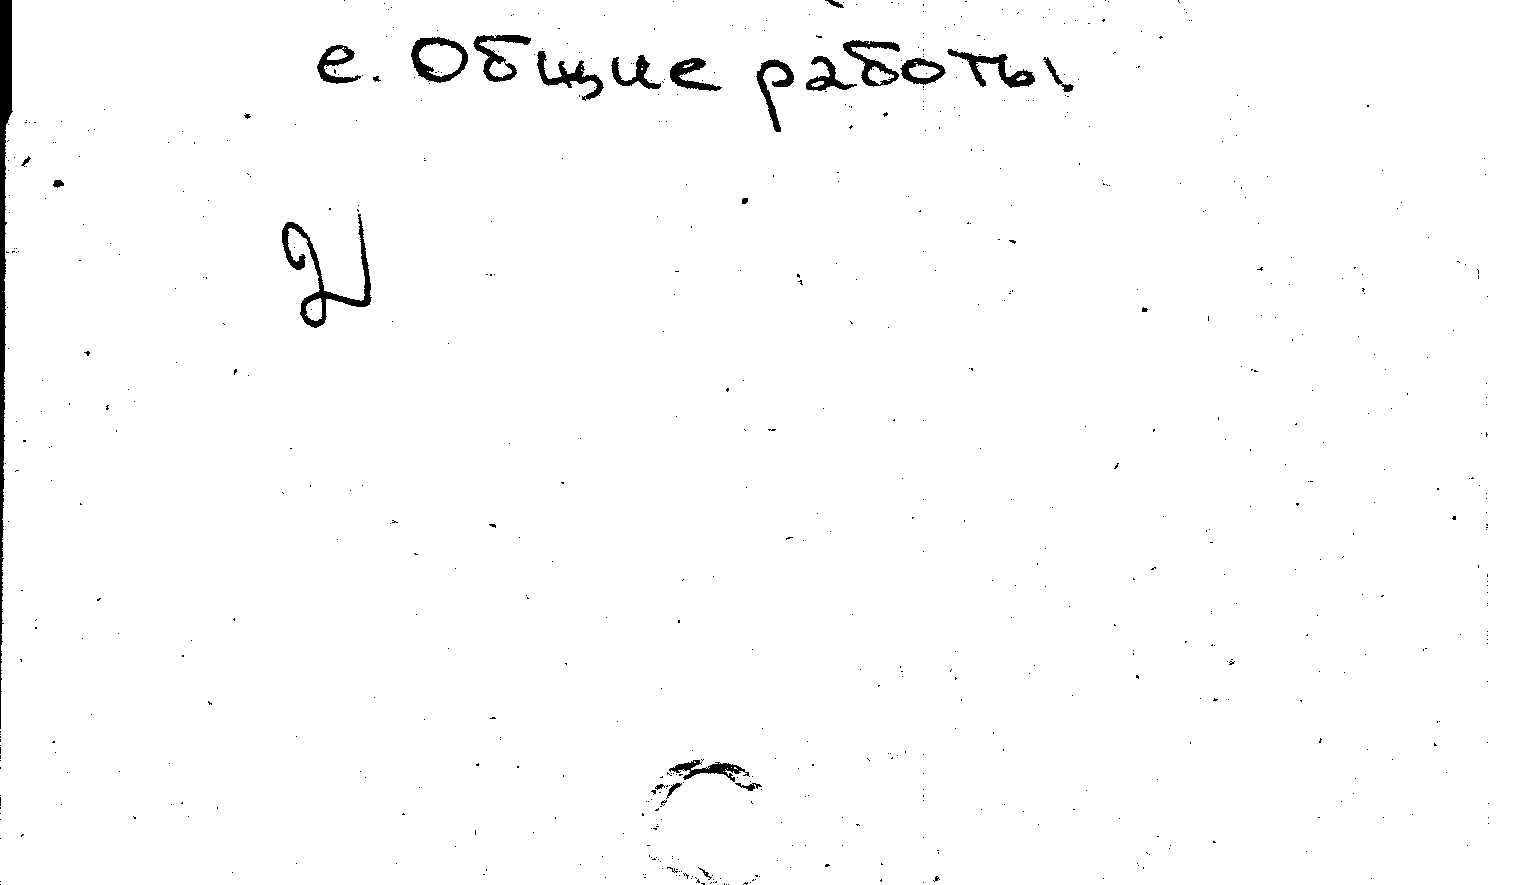 е. Общие работы.